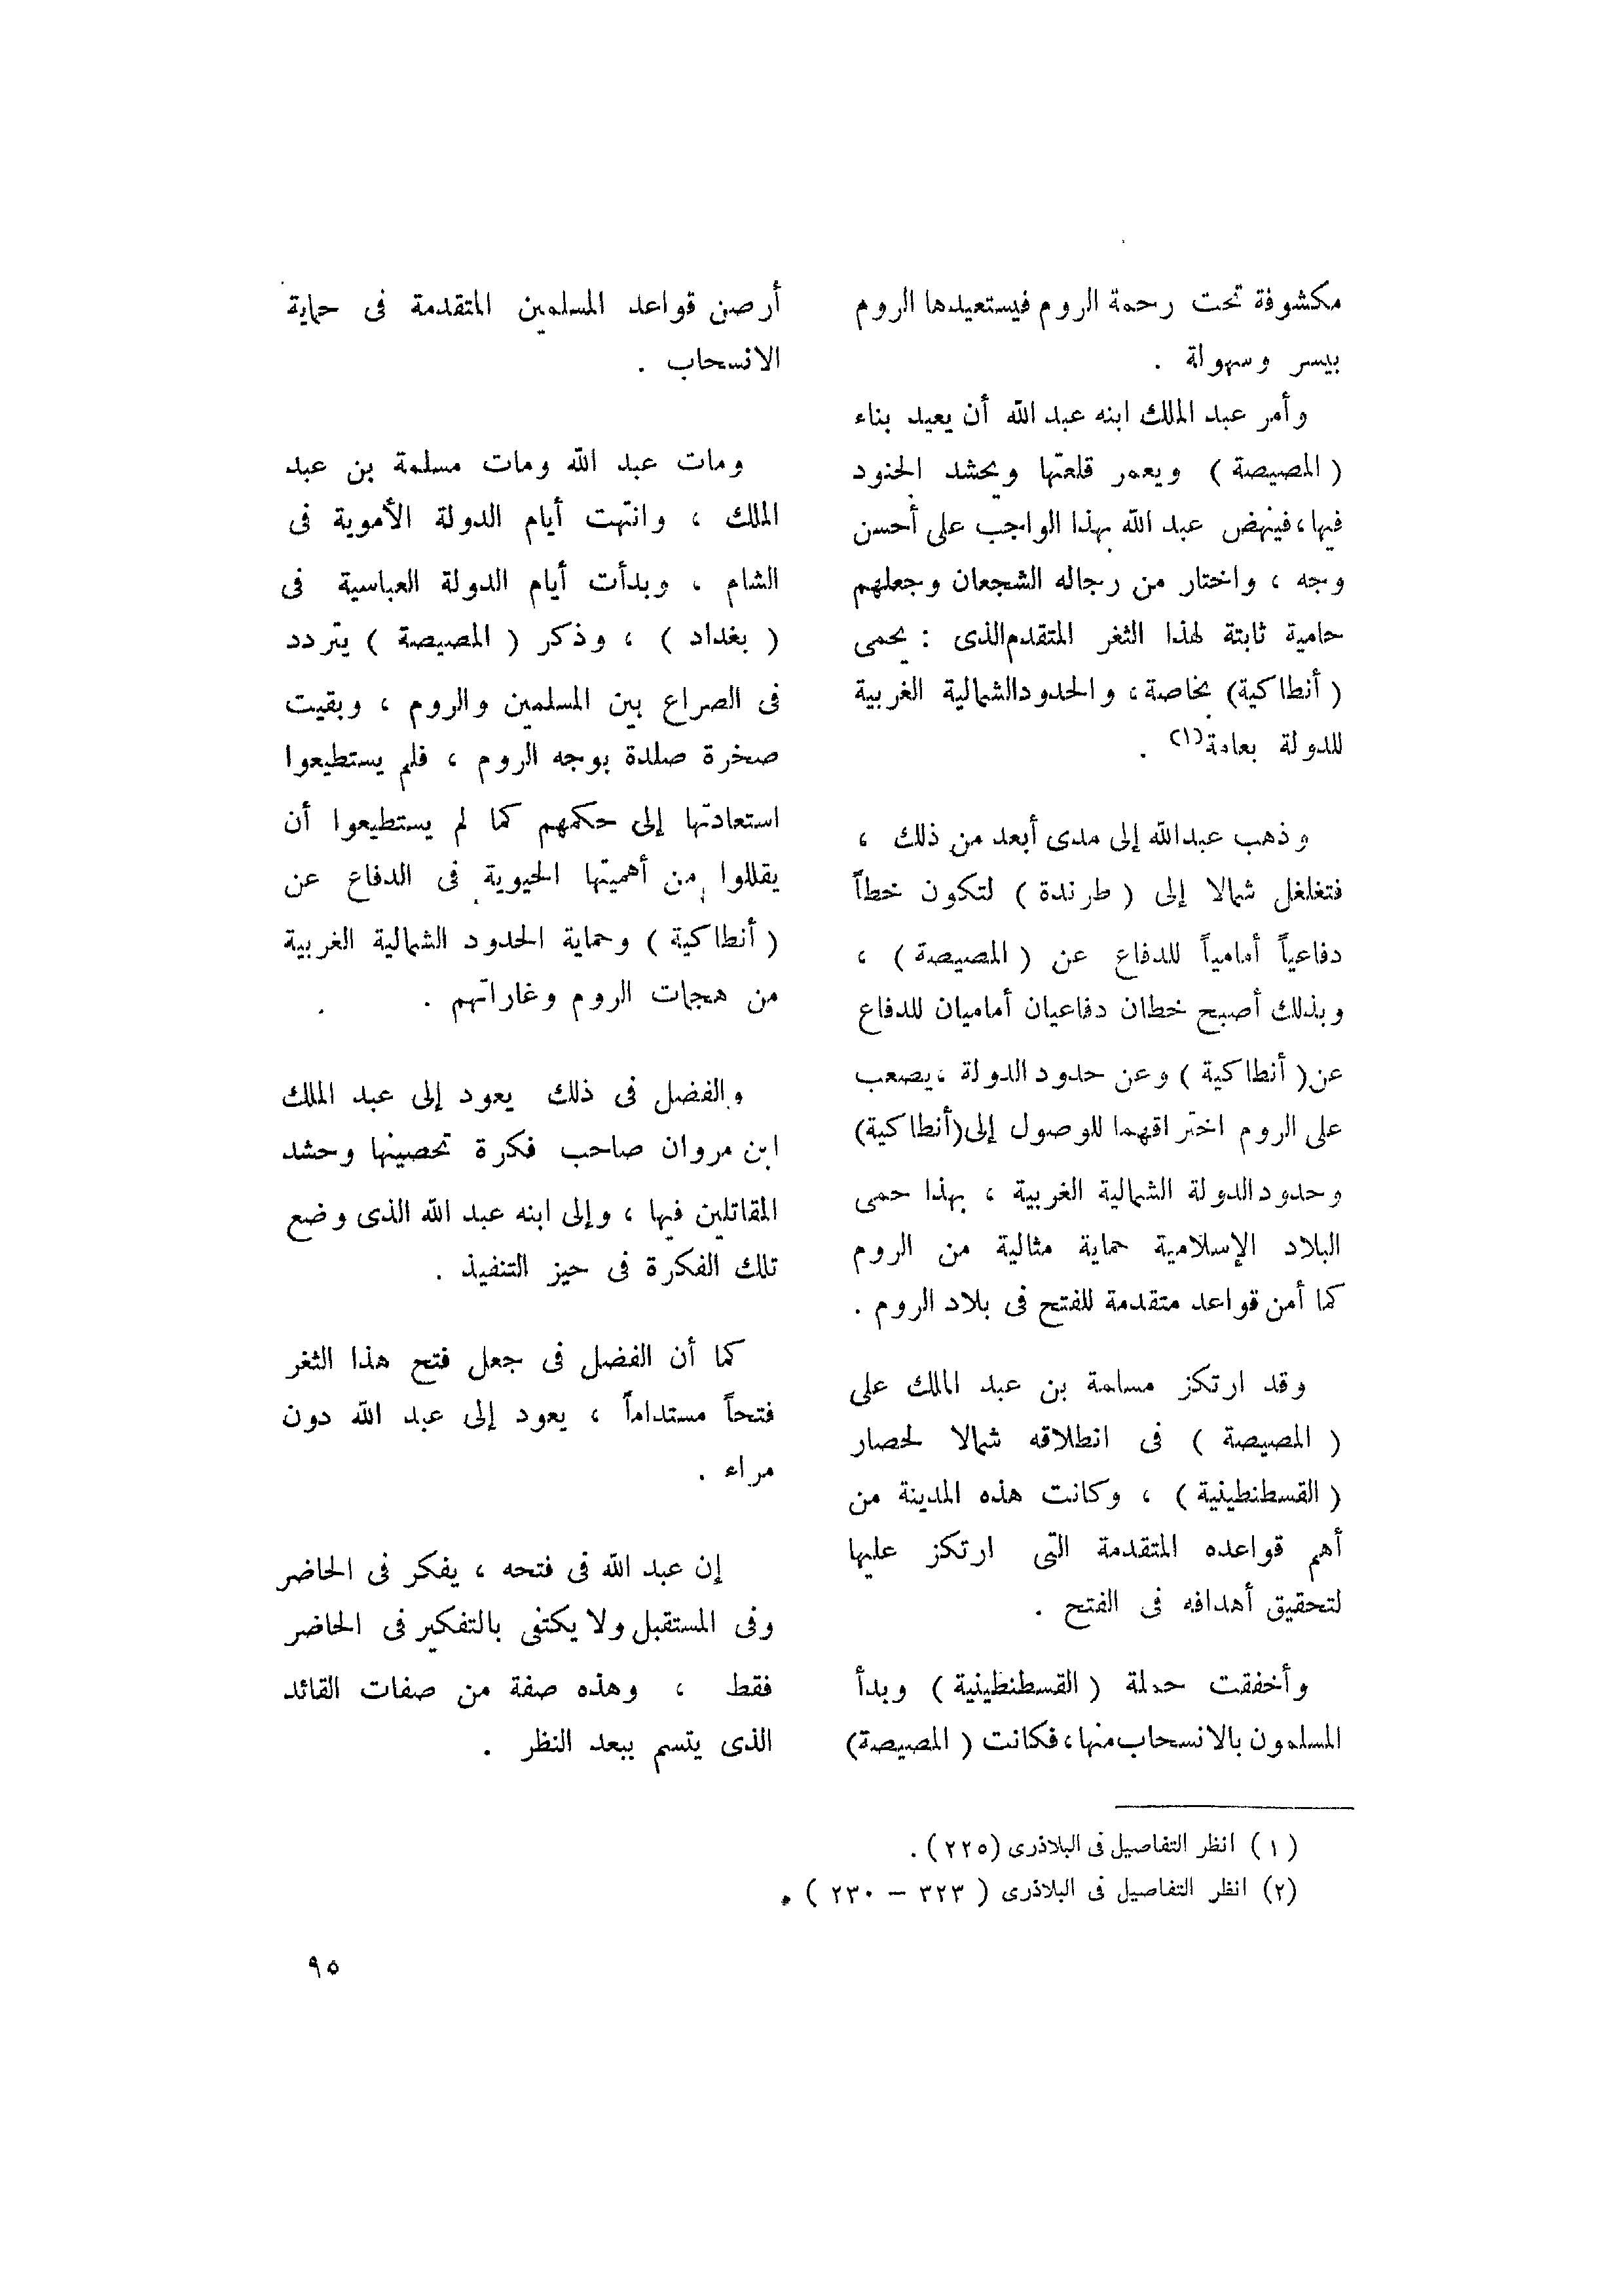 مكشوفة تحت رحمة الروم فيستعيدها الروم
بيسر وسهولة .
وأمر عبد الملك ابنه عبد الله أن يعيد بناء
( المصيصة ) ويعمر قلعتها ويحشد الجنود
فيها ، فينهض عبد الله بهذا الواجب على أحسن
وجه ، واختار من رجاله الشجعان وجعلهم
حامية ثابتة لهذا الثغر المتقدم الذى : يحمى
( أنطاكية ) بخاصة ، والحدود الشمالية الغربية
للدولة بعامة (١) .
وذهب عبد الله إلى مدى أبعد من ذلك ،
فتغلغل شمالا إلى ( طرندة ) لتكون خطاً
دفاعياً أمامياً للدفاع عن ( المصيصة ) ،
وبذلك أصبح خطان دفاعيان أماميان للدفاع
عن ( أنطاكية ) وعن حدود الدولة ، يصعب
على الروم اختراقهما للوصول إلى (أنطاكية)
وحدود الدولة الشمالية الغربية ، بهذا حمى
البلاد الإسلامية حماية مثالية من الروم
كما أمن قواعد متقدمة للفتح فى بلاد الروم .
وقد ارتكز مسلمة بن عبد الملك على
( المصيصة ) فى انطلاقه شمالا لحصار
( القسطنطينية ) ، وكانت هذه المدينة من
أهم قواعده المتقدمة التى ارتكز عليها
لتحقيق أهدافه فى الفتح .
وأخفقت حملة ( القسطنطينية ) وبدأ
المسلمون بالانسحاب منها ، فكانت ( المصيصة )
أرصن قواعد المسلمين المتقدمة فى حماية
الانسحاب .
ومات عبد الله ومات مسلمة بن عبد
الملك ، وانتهت أيام الدولة الأموية فى
الشام . وبدأت أيام الدولة العباسية فى
( بغداد ) ، وذكر ( المصيصة ) يتردد
فى الصراع بين المسلمين والروم ، وبقيت
صخرة صلدة بوجه الروم ، فلم يستطيعوا
استعادتها إلى حكمهم كما لم يستطيعوا أن
يقللوا من أهميتها الحيوية فى الدفاع عن
( أنطاكية ) وحماية الحدود الشمالية الغربية
من هجمات الروم وغاراتهم .
والفضل فى ذلك يعود إلى عبد الملك
ابن مروان صاحب فكرة تحصينها وحشد
المقاتلين فيها ، وإلى ابنه عبد الله الذى وضع
تلك الفكرة فى حيز التنفيذ .
كما أن الفضل فى جعل فتح هذا الثغر
فتحاً مستداماً ، يعود إلى عبد الله دون
مراء .
إن عبد الله فى فتحه ، يفكر فى الحاضر
وفى المستقبل ولا يكتفى بالتفكير فى الحاضر
فقط ، وهذه صفة من صفات القائد
الذى يتسم ببعد النظر .
( ١ ) انظر التفاصيل فى البلاذرى (٢٢٥) .
(٢) انظر التفاصيل فى البلاذرى ( ٣٢٣ – ٢٣٠ ) .
٩٥